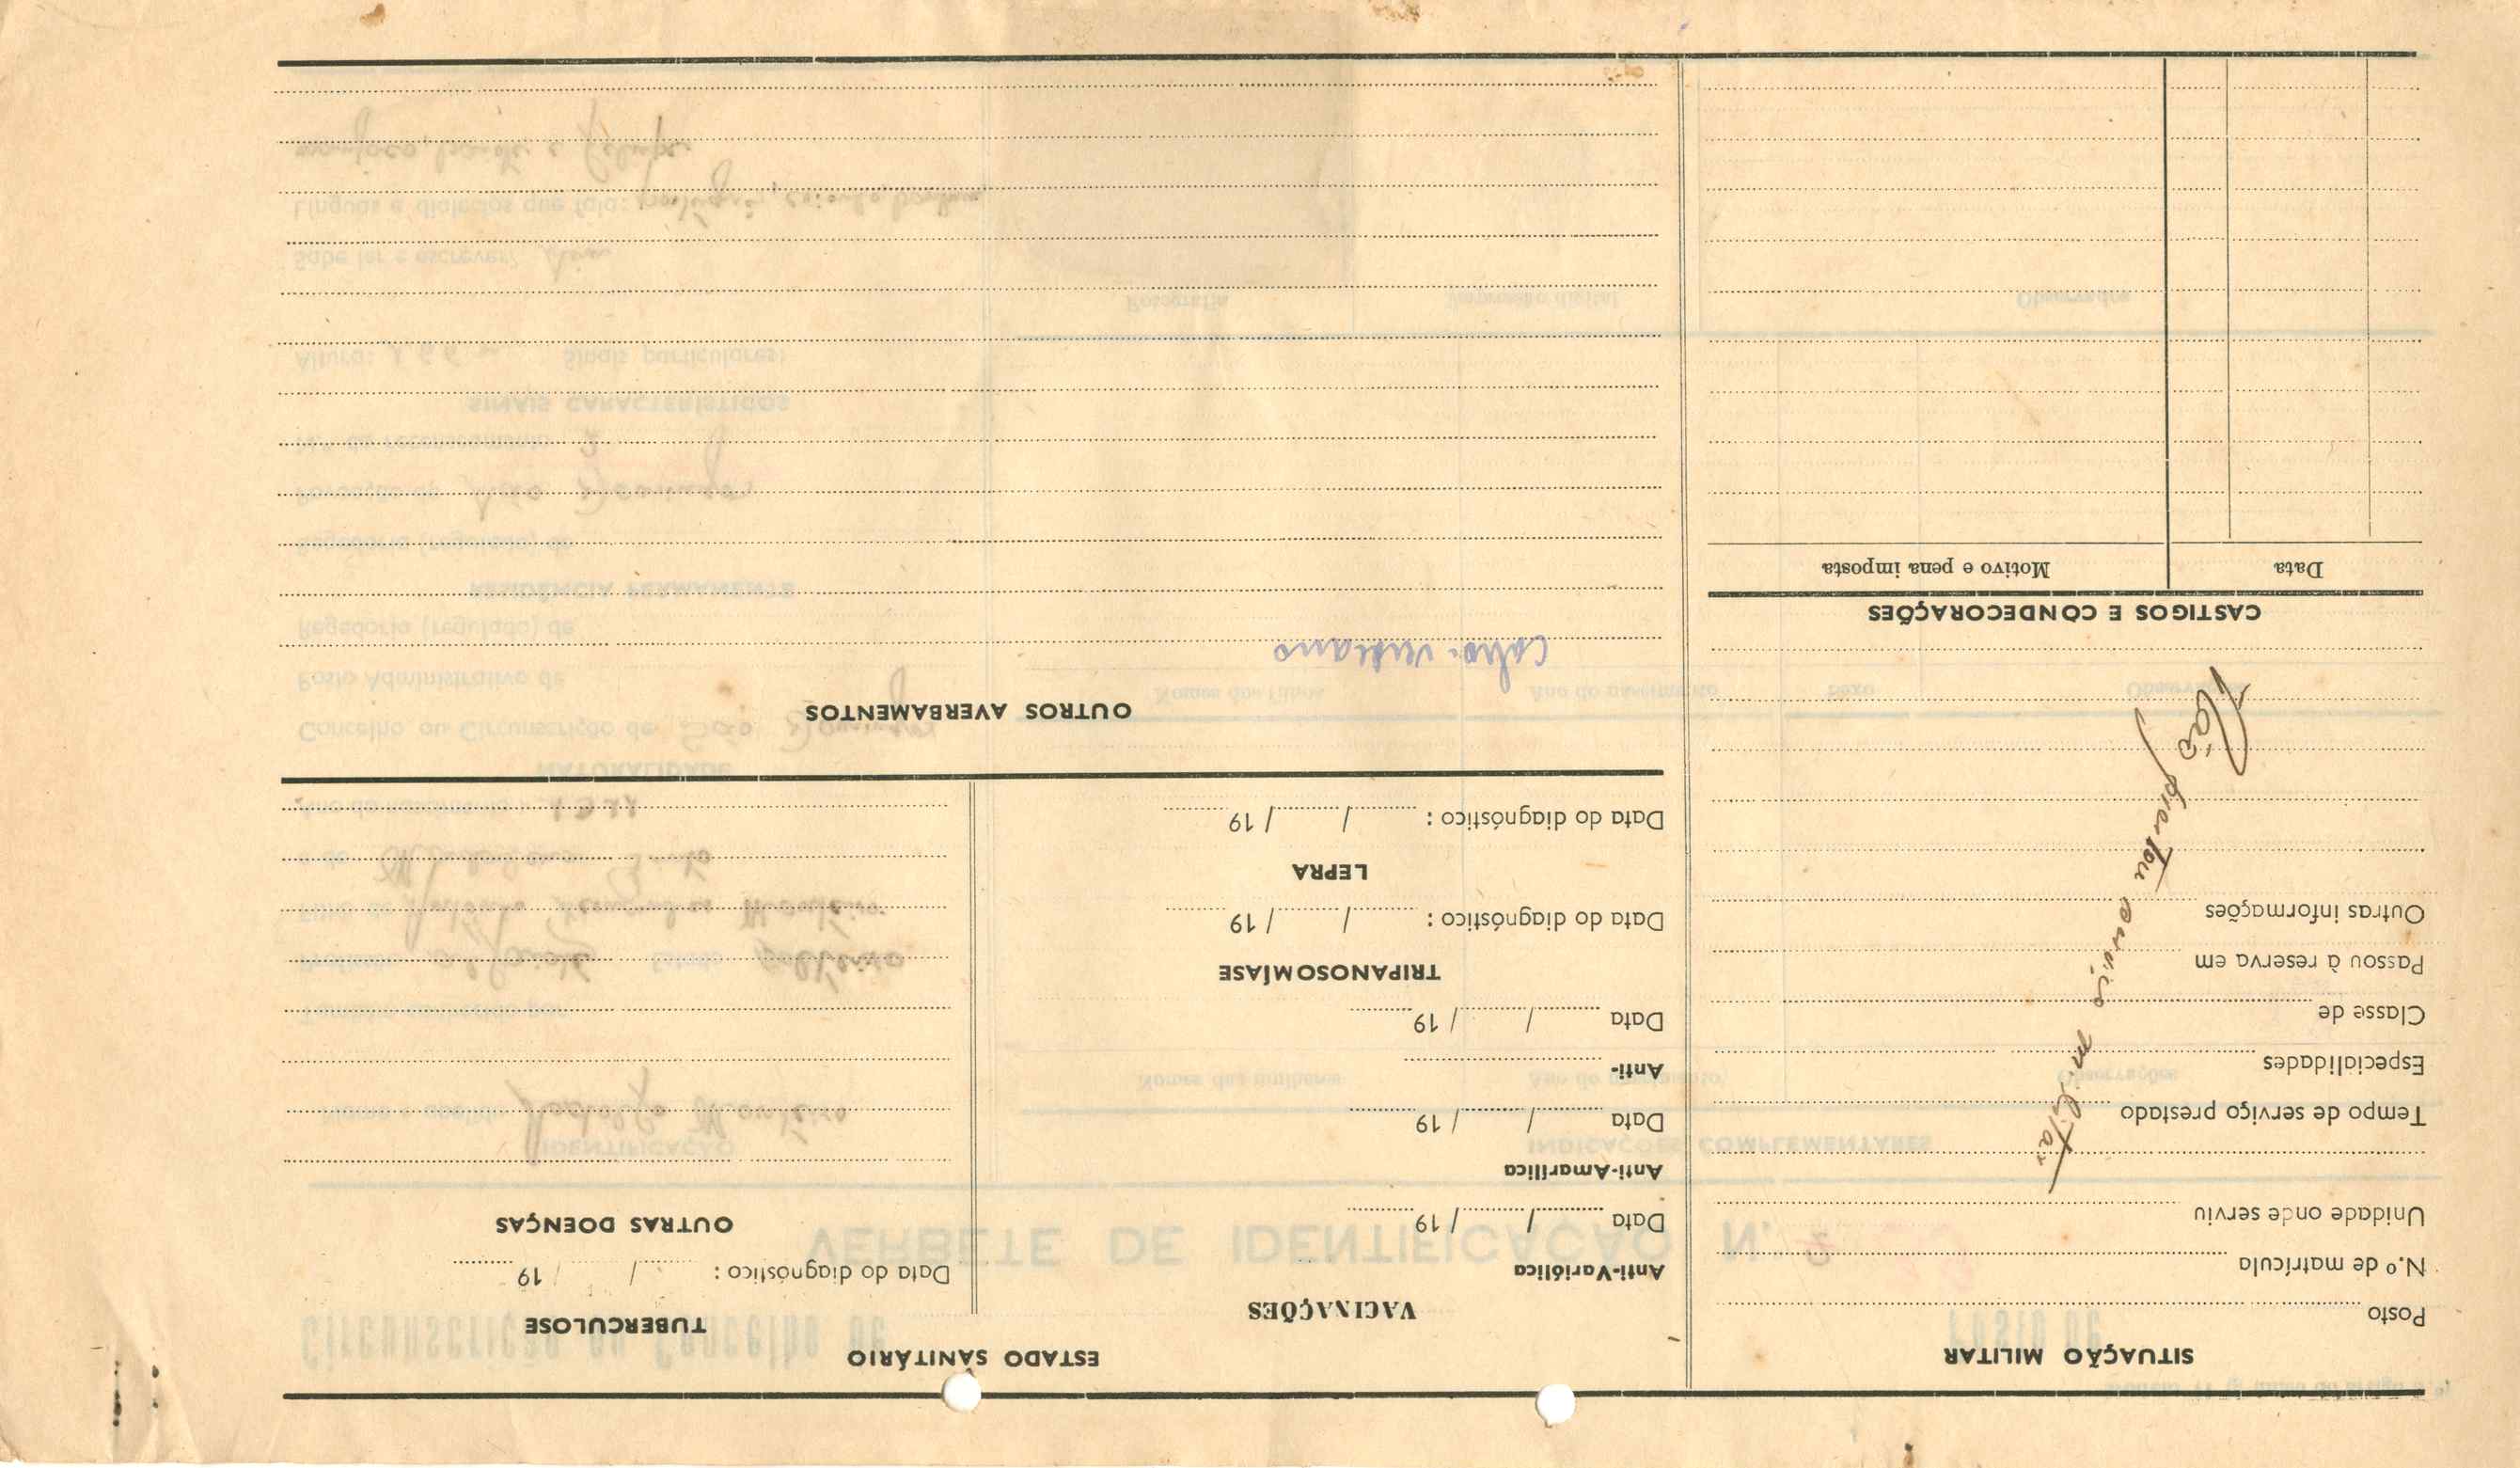 SITUAÇÃO MILITAR
Posto
N.º de matrícula
Unidade onde serviu
Tempo de serviço prestado
Especialidades
Classe de
Passou à reserva em
Outras informações
Não prestou serviço militar
CASTIGOS E CONDECORAÇÕES
Data
Motivo e pena imposta
ESTADO SANITÁRIO
VACINAÇÕES
Anti-Variólica
Data / / 19
Anti-Amarílica
Data / / 19
Anti-
Data / / 19
TRIPANOSOMÍASE
Data do diagnóstico : / / 19
LEPRA
Data do diagnóstico : / / 19
TUBERCULOSE
Data do diagnóstico : / / 19
OUTRAS DOENÇAS
OUTROS AVERBAMENTOS
Cabo-verdeano